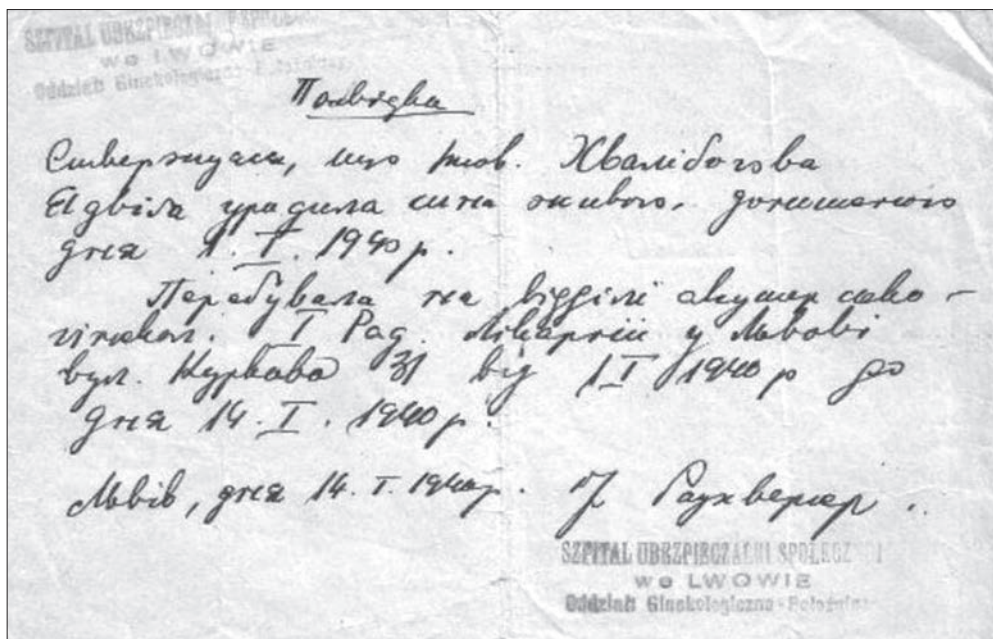 SZPITAL UBEZPIECZALNI SPOŁECZ
we LWOWIE
Oddział Ginekologiczno-Położnicz
Посвідка
Стверджуєм, що тов. Хвалібогова
Ядвіґа уродила сина живого, доношеного
дня 1. I. 1940 р.
Перебувала на відділі акушерсько-
гінекол. I Рад. Лікарнії у Львові
вул. Куркова 31 від 1 I 1940 р до
дня 14. I. 1940 р.
Львів, дня 14. I. 1940 р. Раухверґер
SZPITAL UBEZPIECZALNI SPOŁECZNEJ
we LWOWIE
Oddział Ginekologiczno-Położnicz